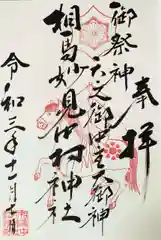 奉拝
御祭神
天之御中主大御神
相馬妙見中村神社
令和三年十二月十一日